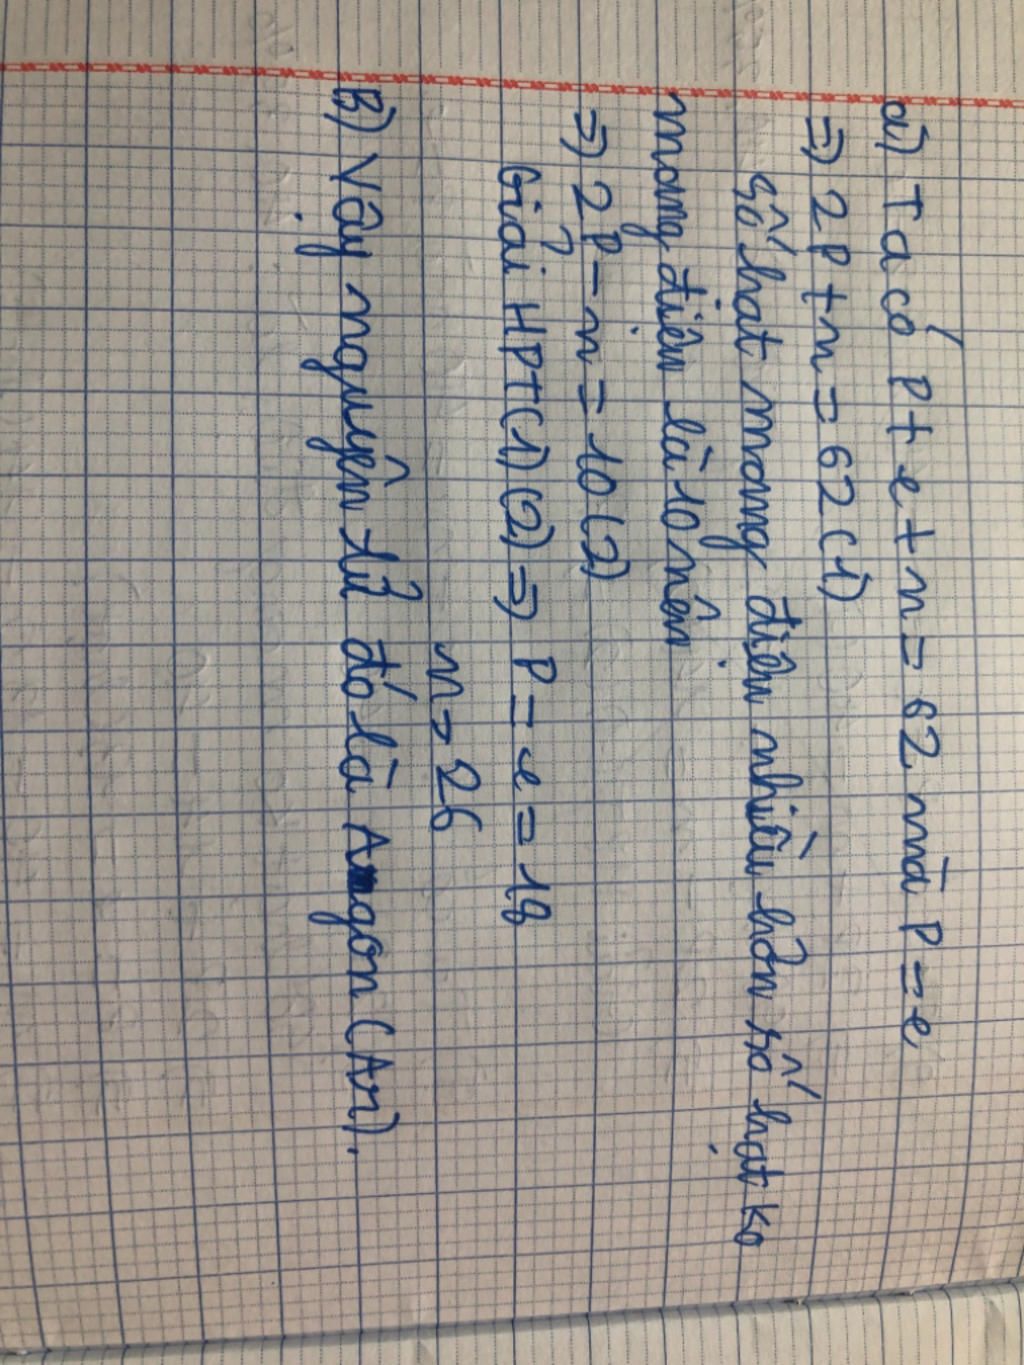 a) Ta có P + e + n = 62 mà P = e
=) 2P + n = 62 (1)
Số hat mang điện nhiều hơn số hạt ko
mang điện là 10 nên
=) 2P - n = 10 (2)
Giải HPT (1) (2) =) P = e = 18
n = 26
B) Vậy nguyên tử đó là Agon (Ar).